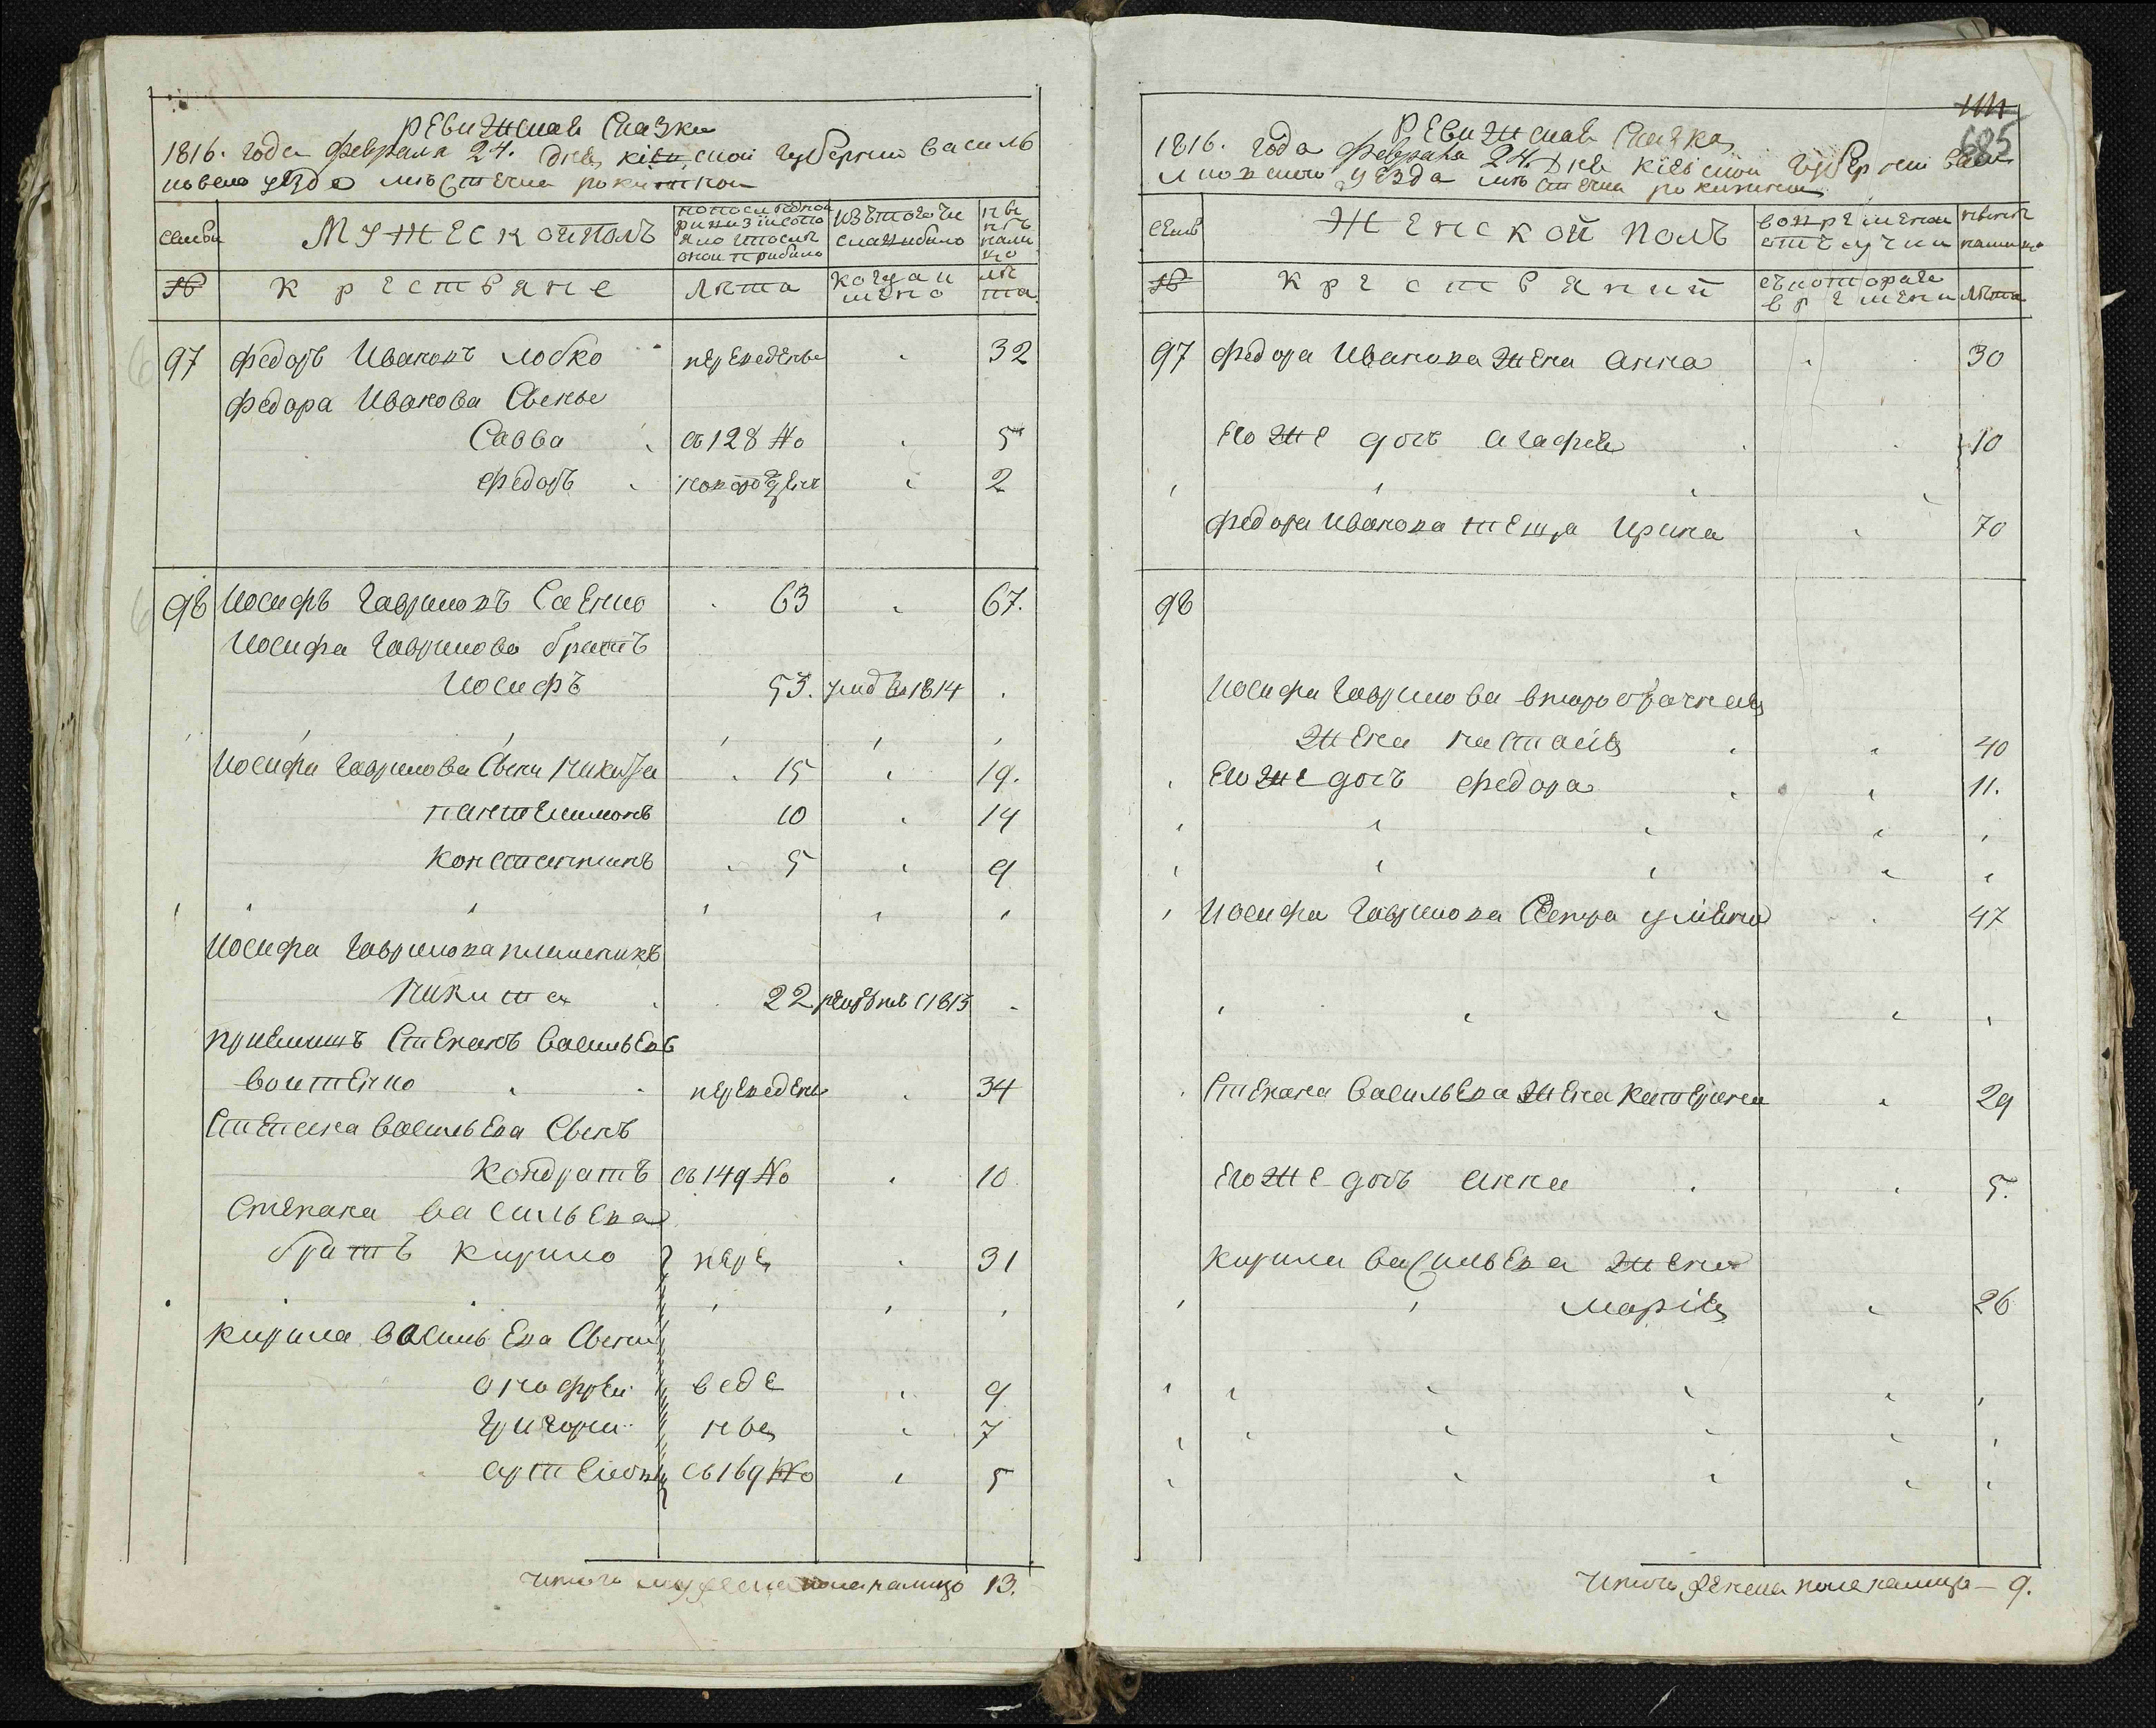 ревижская сказка
1816. года февраля 24. дня кіевской губернии василь
ковского уезда местечка рокитной
семьи
мужеской полъ
изътого числа выбыло
ныне налицо
№
крестьяне
лета
когда имено
лета
97 федоръ Ивановъ лобко переведены 32
федора Иванова Сыны
Савва съ 128 No 5
федоръ новорожденъ 2
98 Иосифъ гавриловъ Саенко 63 67.
Иосифа гаврилова братъ
Иосифъ 53. умре в 1814
Иосифа гаврилова Сыны никита 15 19.
пантелимонъ 10 14
константинъ 5 9
Иосифа гаврилова племеникъ
никита 22 рекрутъ 1813
приемишъ Степанъ васильевъ
воитенко переведены 34
Степана васильева Сынъ
кондратъ съ 149 No 10
Степана васильева
братъ кирило пере 31
кирила васильева Сыны
онофреи веде 9
григори ны 7
артемонъ съ 169 No 5
Итого мужеска пола налицо 13.
685
ревижская сказка
1816. года февраля 24 дня кіевской губернии васи
лковского уезда местечка рокитной
семьи
женской полъ
вовременной отлучки
ныне налицо
№
крестьяний
съкоторого времени
лета
97 федора Иванова жена анна 30
его же дочь агафия 10
федора Иванова теща Ирина 70
98
Иосифа гаврилова второбрачная
жена настасия 40
его же дочь федора 11.
Иосифа гаврилова Сестра улияна 47
Степана васильева жена катерина 29
его же дочь анна 5.
кирила васильева жена
марія 26
Итого женска пола налицо — 9.